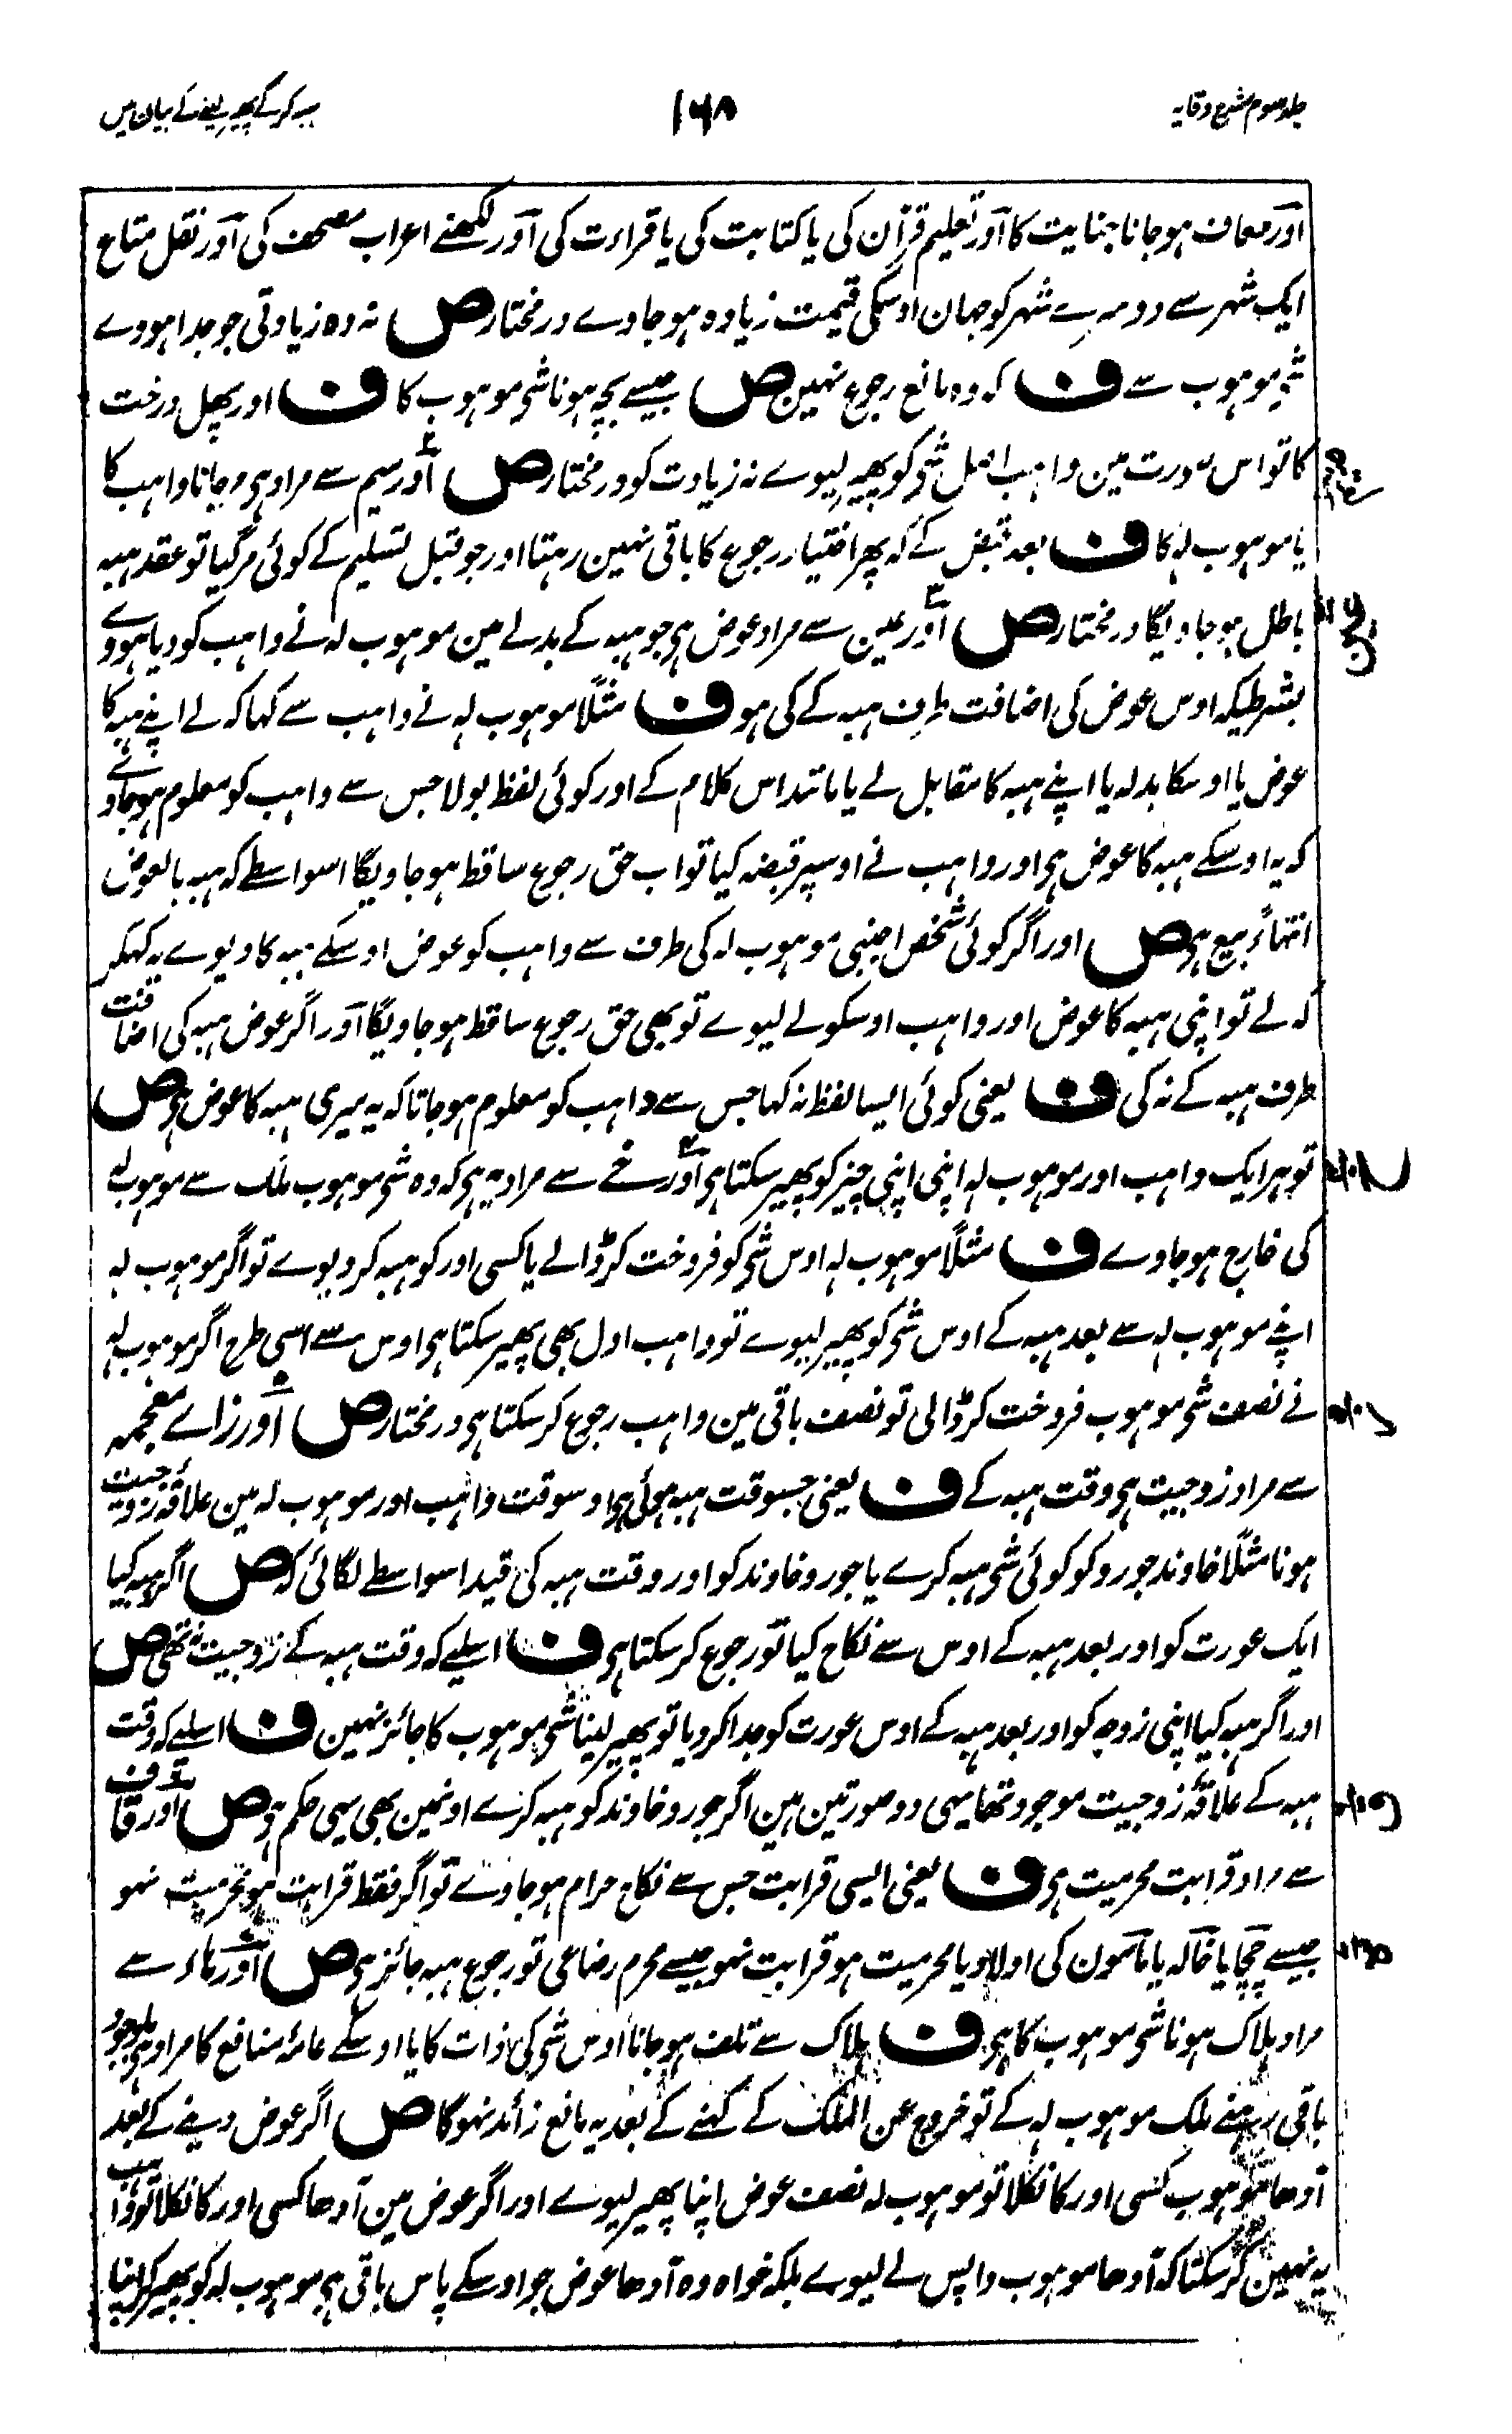 جلد سوم شرح وقایہ
۱۶۸
ہبہ کرکے پھیر لینے کے بیان میں
اور معاف ہو جانا جنایت کا اور تعلیم قرآن کی یا کتابت کی یا قراءت کی اور لکھنے اعراب مصحف کی اور نقل متاع
ایک شہر سے دوسرے شہر کو جہان اوسکی قیمت زیادہ ہو جاوے درمختار ص نہ وہ زیادتی جو جدا ہووے
شیٔ موہوب سے ف کہ وہ مانع رجوع نہین ص جیسے بچہ ہونا شیٔ موہوب کا ف اور پھل درخت
کا تو اس صورت مین واہب اصل شیٔ کو پھیر لیوے نہ زیادت کو درمختار ص اور میم سے مراد ہی مرجانا واہب کا
یا موہوب لہ کا ف بعد قبض کے کہ پھر اختیار رجوع کا باقی نہین رہتا اور جو قبل تسلیم کے کوئی مرگیا تو عقد ہبہ
باطل ہو جاویگا درمختار ص اور عین سے مراد عوض ہی جو ہبہ کے بدلے مین موہوب لہ نے واہب کو دیا ہووے
بشرطیکہ اوس عوض کی اضافت طرف ہبہ کے کی ہو ف مثلًا موہوب لہ نے واہب سے کہا کہ لے اپنے ہبہ کا
عوض یا اوسکا بدلہ یا اپنے ہبہ کا مقابل لے یا مانند اس کلام کے اور کوئی لفظ بولا جس سے واہب کو معلوم ہو جاوے
کہ یہ اوسکے ہبہ کا عوض ہی اور واہب نے اوسپر قبضہ کیا تو اب حق رجوع ساقط ہو جاویگا اسواسطے کہ ہبہ بالعوض
انتہاءً بیع ہی ص اور اگر کوئی شخص اجنبی موہوب لہ کی طرف سے واہب کو عوض اوسکے ہبہ کا دیوے یہ کہکر
کہ لے تو اپنی ہبہ کا عوض اور واہب اوسکو لے لیوے تو بھی حق رجوع ساقط ہو جاویگا اور اگر عوض ہبہ کی اضافت
طرف ہبہ کے نہ کی ف یعنی کوئی ایسا لفظ نہ کہا جس سے واہب کو معلوم ہو جاتا کہ یہ میری ہبہ کا عوض ہی ص
تو ہر ایک واہب اور موہوب لہ اپنی اپنی چیز کو پھیر سکتا ہی اور خے سے مراد یہ ہی کہ وہ شیٔ موہوب ملک سے موہوب لہ
کی خارج ہو جاوے ف مثلًا موہوب لہ اوس شیٔ کو فروخت کرڈالے یا کسی اور کو ہبہ کر دیوے تو اگر موہوب لہ
اپنے موہوب لہ سے بعد ہبہ کے اوس شیٔ کو پھیر لیوے تو واہب اول بھی پھیر سکتا ہی اوس سے اسی طرح اگر موہوب لہ
نے نصف شیٔ موہوب فروخت کرڈالی تو نصف باقی مین واہب رجوع کرسکتا ہی درمختار ص اور زاے معجمہ
سے مراد زوجیت ہی وقت ہبہ کے ف یعنی جسوقت ہبہ ہوئی ہی اوسوقت واہب اور موہوب لہ مین علاقۂ زوجیت
ہونا مثلًا خاوند جورو کو کوئی شیٔ ہبہ کرے یا جورو خاوند کو اور وقت ہبہ کی قید اسواسطے لگائی کہ ص اگر ہبہ کیا
ایک عورت کو اور بعد ہبہ کے اوس سے نکاح کیا تو رجوع کرسکتا ہی ف اسلیے کہ وقت ہبہ کے زوجیت نہ تھی ص
اور اگر ہبہ کیا اپنی زوجہ کو اور بعد ہبہ کے اوس عورت کو جدا کردیا تو پھیر لینا شیٔ موہوب کا جائز نہین ف اسلیے کہ وقت
ہبہ کے علاقۂ زوجیت موجود تھا یہی دو صورتین ہین اگر جورو خاوند کو ہبہ کرے اونمین بھی یہی حکم ہی ص اور قاف
سے مراد قرابت محرمیت ہی ف یعنی ایسی قرابت جس سے نکاح حرام ہو جاوے تو اگر فقط قرابت ہو محرمیت نہو
جیسے چچا یا خالہ یا مامون کی اولاد یا محرمیت ہو قرابت نہو جیسے محرم رضاعی تو رجوع ہبہ جائز ہی ص اور ہاء سے
مراد ہلاک ہونا شیٔ موہوب کا ہی ف ہلاک سے تلف ہو جانا اوس شیٔ کی ذات کا یا اوسکے عامۂ منافع کا مراد ہی باوجود
باقی رہنے ملک موہوب لہ کے تو خروج عن الملک کے کہنے کے بعد یہ مانع زائد نہوگا ص اگر عوض دینے کے بعد
آدھا موہوب کسی اور کا نکلا تو موہوب لہ نصف عوض اپنا پھیر لیوے اور اگر عوض مین آدھا کسی اور کا نکلا تو واہب
یہ نہین کرسکتا کہ آدھا موہوب واپس لے لیوے بلکہ خواہ وہ آدھا عوض جو اوسکے پاس باقی ہی موہوب لہ کو پھیر کر اپنا